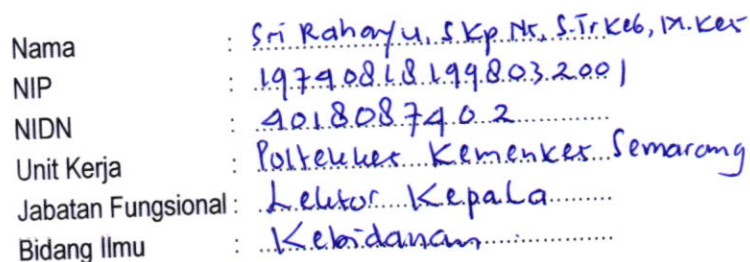 Nama : Sri Rahayu, S.Kp.Ns, S.Tr.Keb, M.Kes
NIP : 197408181998032001
NIDN : 4018087402
Unit Kerja : Poltekkes Kemenkes Semarang
Jabatan Fungsional : Lektor Kepala
Bidang Ilmu : Kebidanan